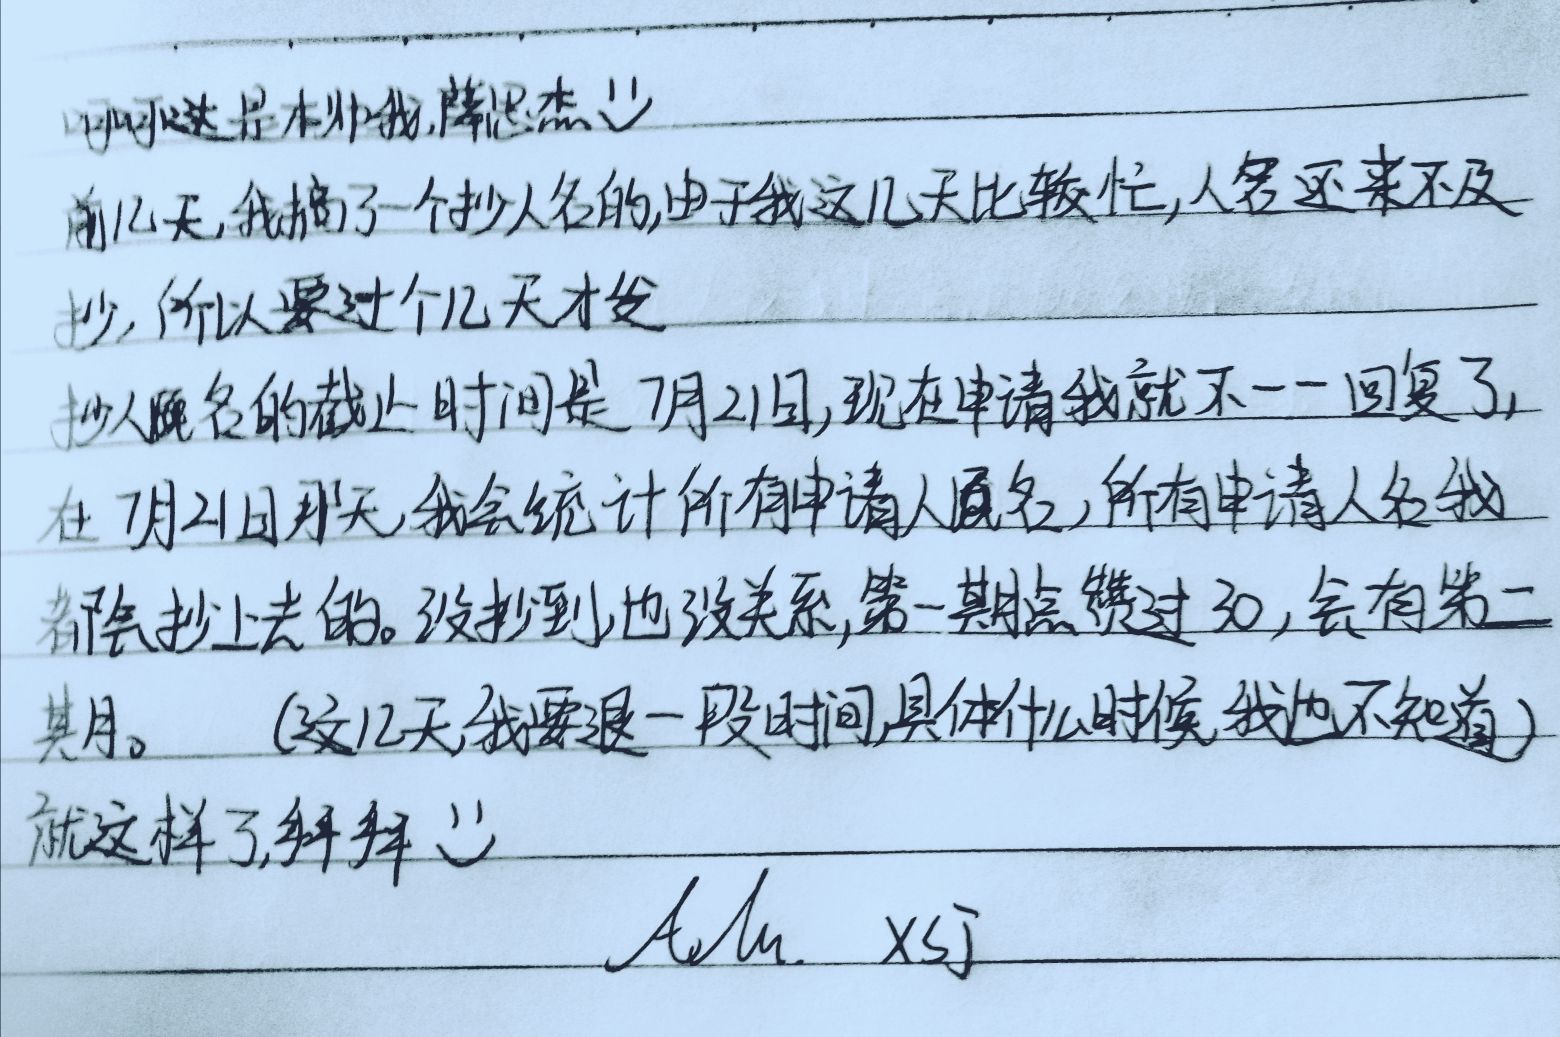 呵呵这是本帅我,薛思杰
前几天,我搞了一个抄人名的,由于我这几天比较忙,人名还来不及
抄,所以要过个几天才发
抄人名的截止时间是7月21日,现在申请我就不一一回复了,
在7月21日那天,我会统计所有申请人名,所有申请人名我
都会抄上去的。没抄到也没关系,第一期点赞过30,会有第二
期。 (这几天,我要退一段时间,具体什么时候,我也不知道)
就这样了,拜拜
xsj